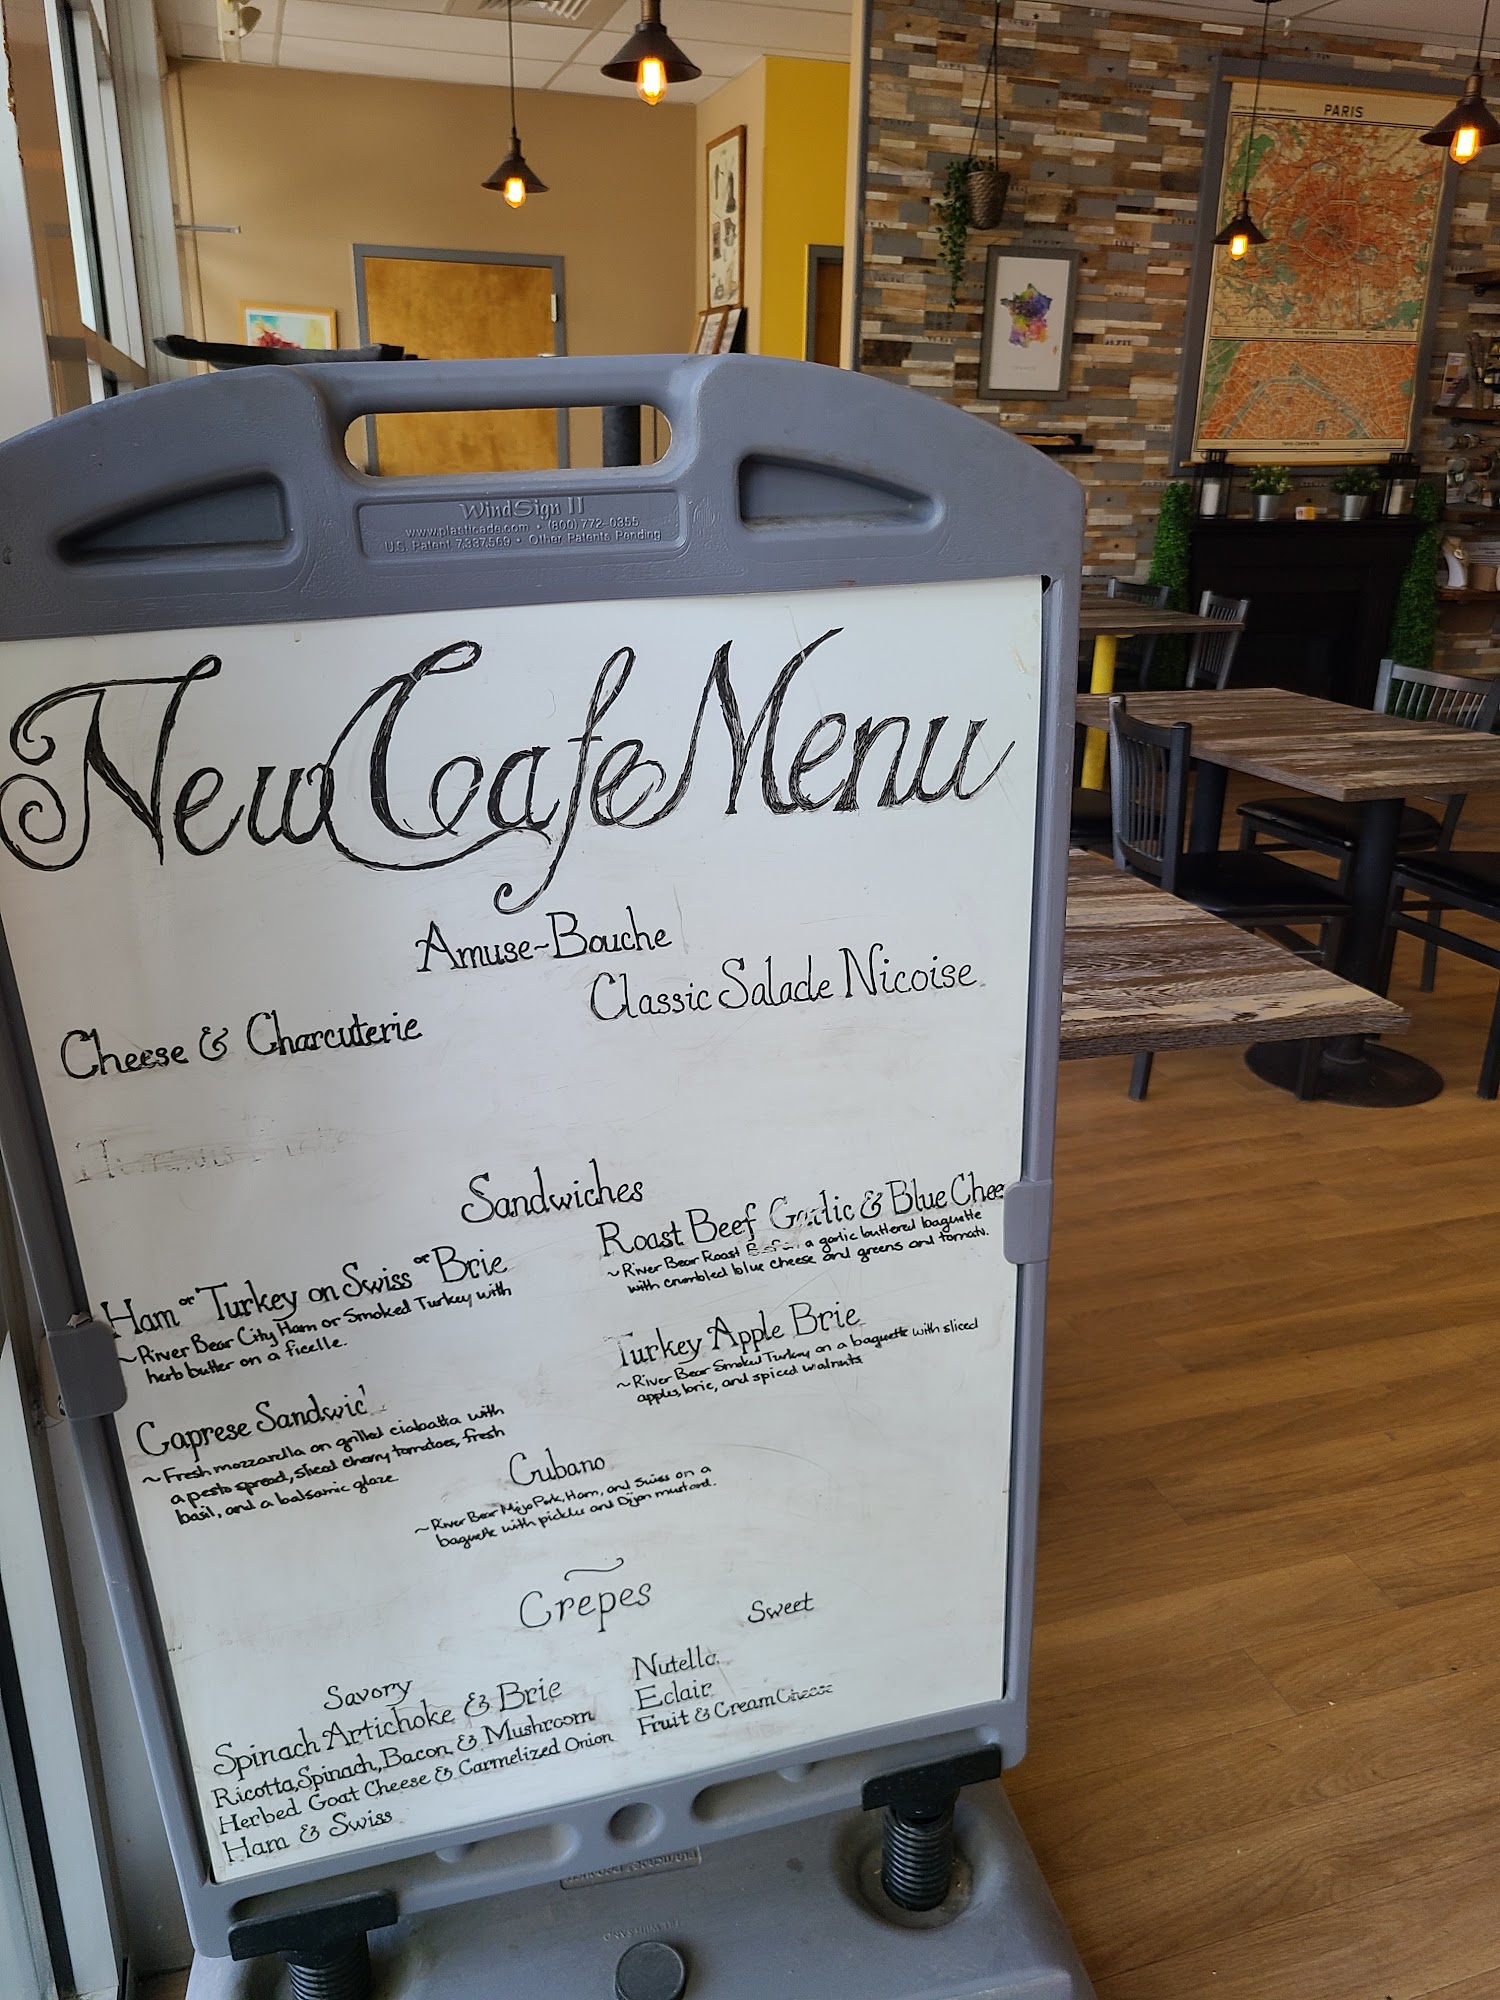 PARIS
WindSign II
www.plasticade.com • (800) 772-0355
U.S. Patent 7,337,569 • Other Patents Pending
New Cafe Menu
Amuse~Bouche
Cheese & Charcuterie
Classic Salade Nicoise
Sandwiches
Ham or Turkey on Swiss or Brie
~River Bear City Ham or Smoked Turkey with
herb butter on a ficelle.
Roast Beef Garlic & Blue Chee
~River Bear Roast Beef on a garlic buttered baguette
with crumbled blue cheese and greens and tomato.
Caprese Sandwic
~Fresh mozzarella on grilled ciabatta with
a pesto spread, sliced cherry tomatoes, fresh
basil, and a balsamic glaze
Turkey Apple Brie
~River Bear Smoked Turkey on a baguette with sliced
apples, brie, and spiced walnuts
Cubano
~River Bear Mojo Pork, Ham, and Swiss on a
baguette with pickles and Dijon mustard.
Crepes
Savory
Spinach Artichoke & Brie
Ricotta, Spinach, Bacon & Mushroom
Herbed Goat Cheese & Carmelized Onion
Ham & Swiss
Sweet
Nutella
Eclair
Fruit & Cream Cheese